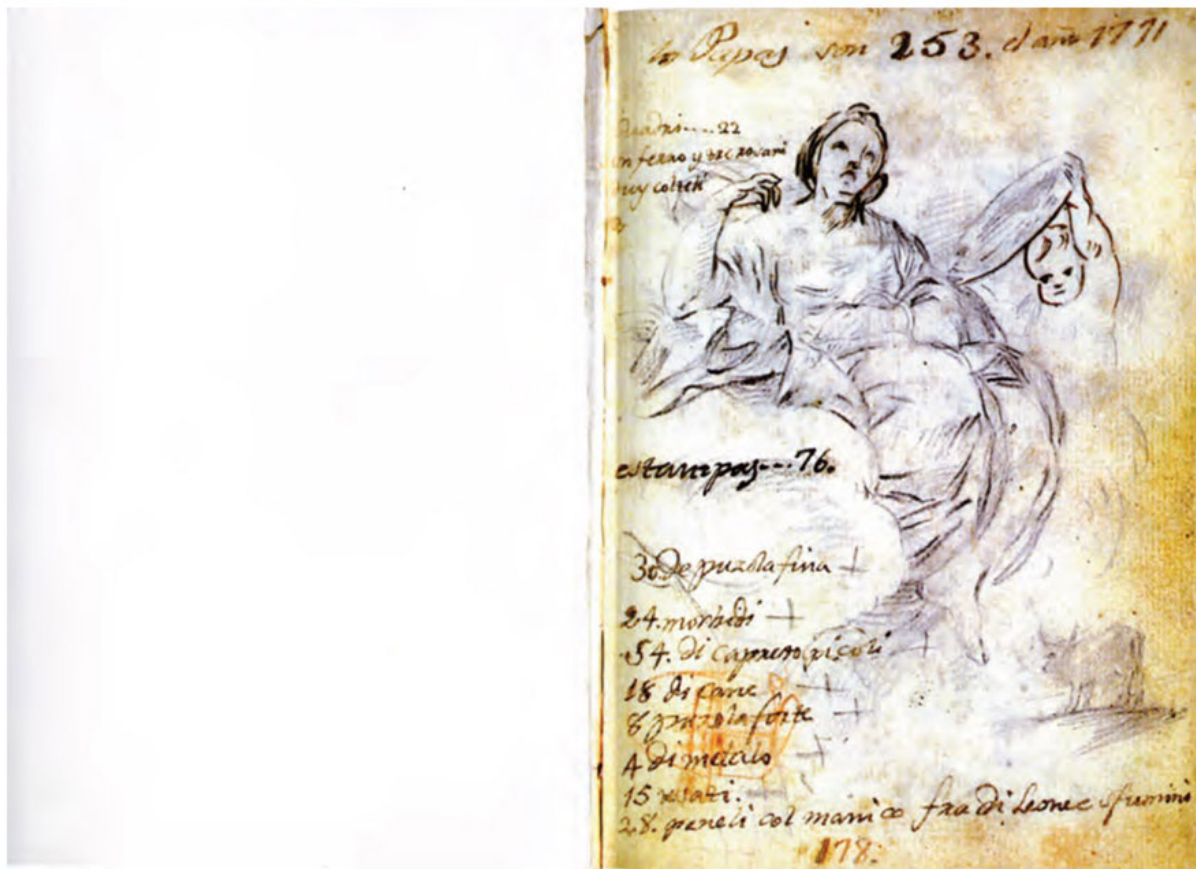 Papas son 253. el año 1771
quadri....22
un ferro y tre rosari
estampas...76.
30 de puzola fina +
24. morbidi +
54. di capreto picoli +
18 di cane +
8 puzola forte +
4 di metalo +
15 usati. +
28. peneli col manico fra di Leone e sfumini
178.